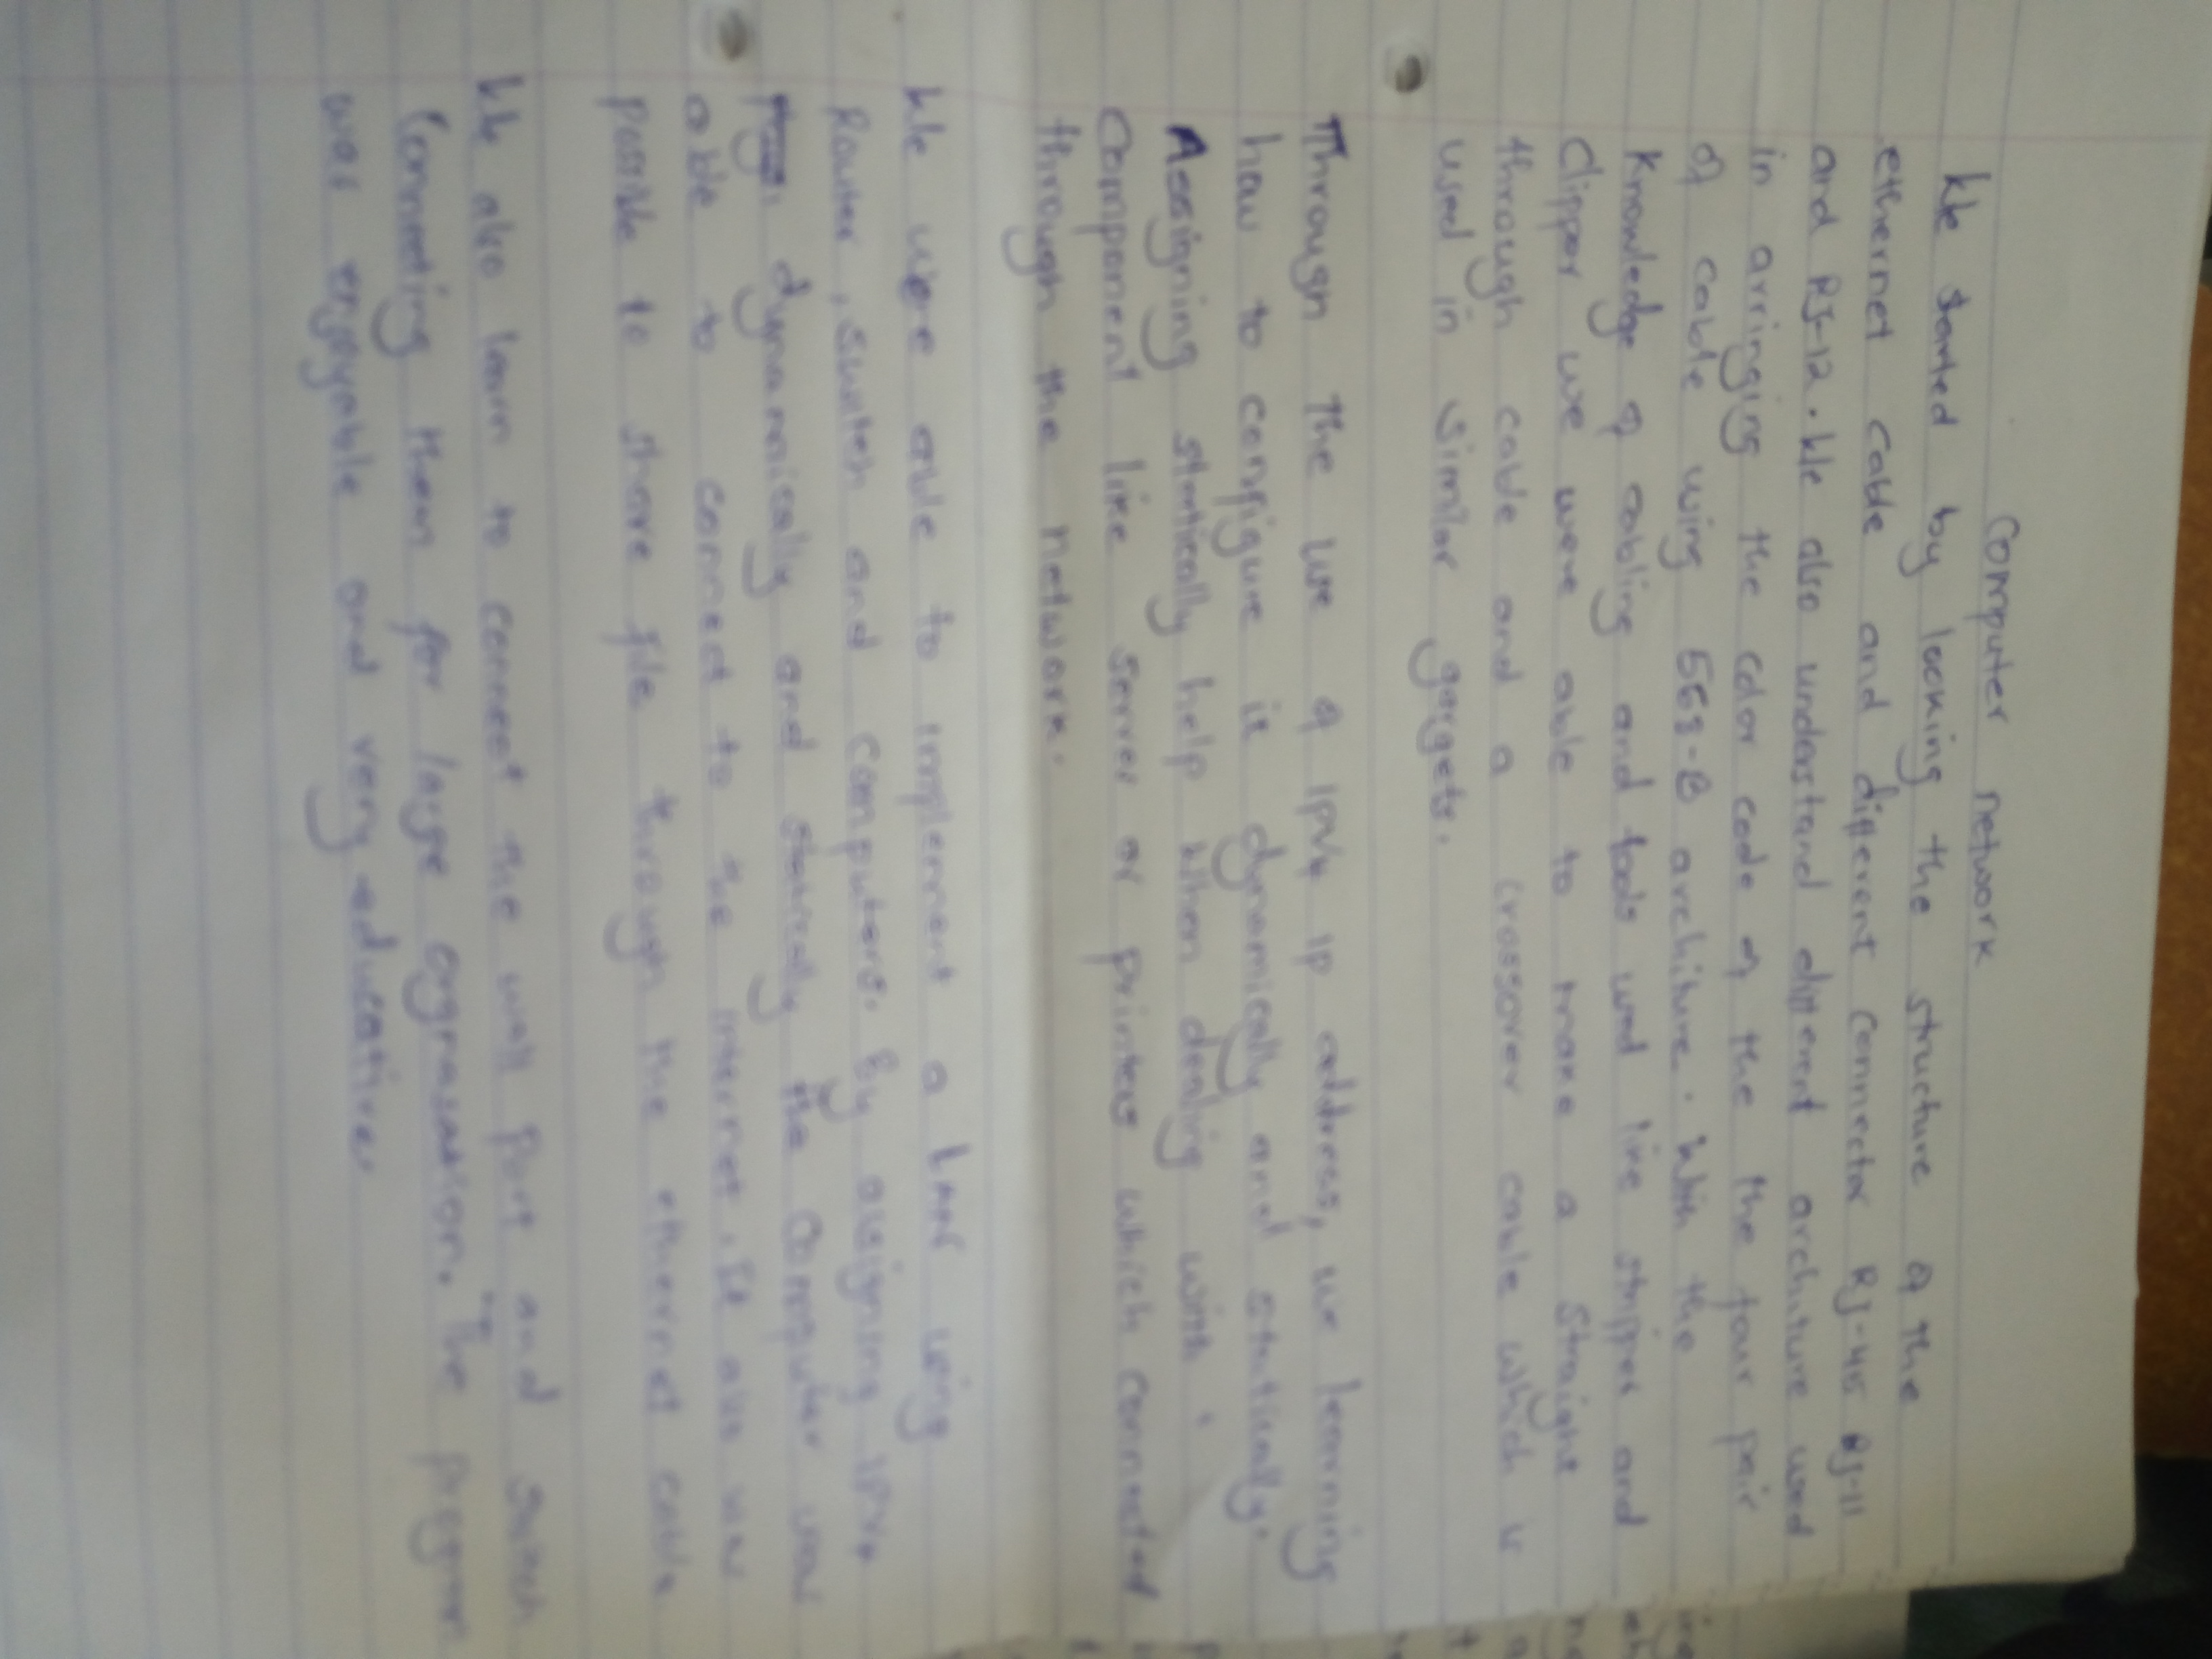 Computer network
We started by looking the structure of the
ethernet cable and different connector RJ-45 RJ-11
and RJ-12. We also understand different architure used
in arringing the color code of the the four pair
of cable using 568-B architure. With the
Knowledge of cabling and tools used like stripper and
Clipper we were able to make a straight
through cable and a crossover cable which is
used in similar gargets.
Through the use of IPV4 ip address, we learning
how to configure it dynamically and statically.
Assigning statically help when dealing with
Component like server or printers which connected
through the network.
We were able to implement a LAN using
Router, switch and computers. By assigning IPV4
dynamically and statically the computer was
able to connect to the internet. It also was
possible to share file through the ethernet cable
We also learn to connect the wall port and switch
Connecting them for large orgnasation. The program
was enjoyable and very educative.